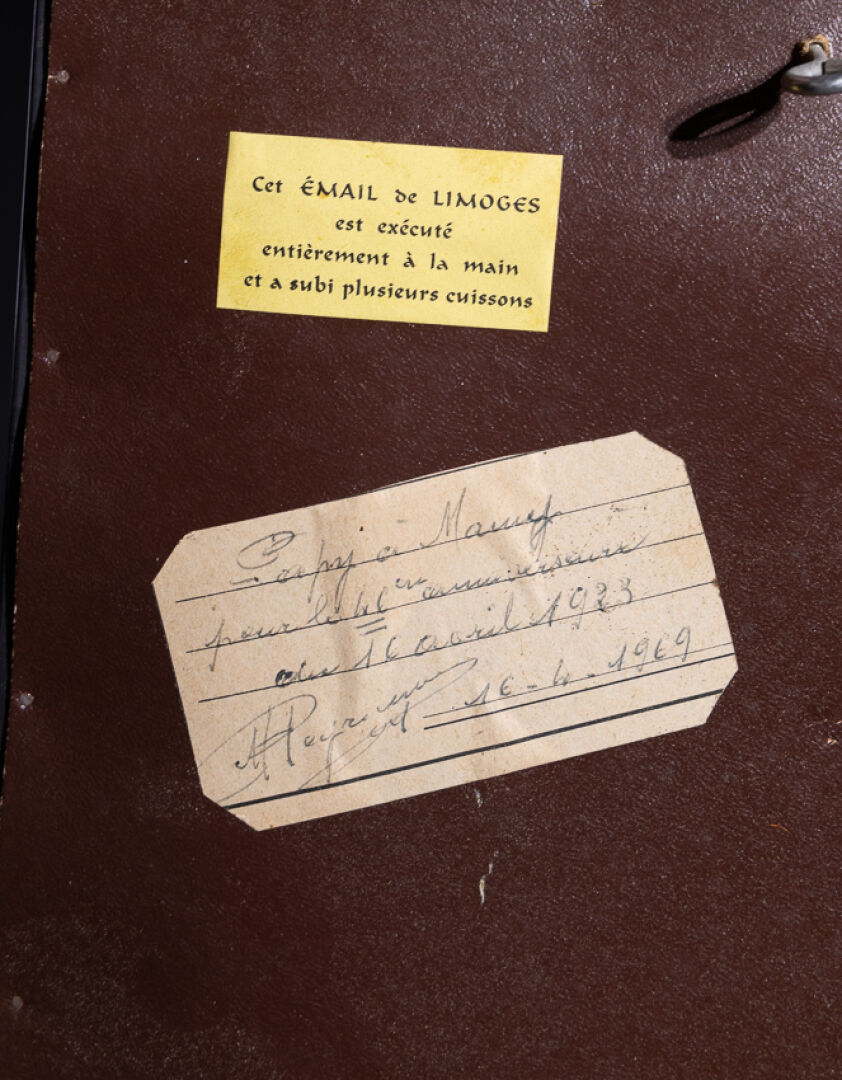 Cet ÉMAIL de LIMOGES
est exécuté
entièrement à la main
et a subi plusieurs cuissons
Papy à Mamy
pour le 46em anniversaire
du 16 avril 1923
16-4-1969